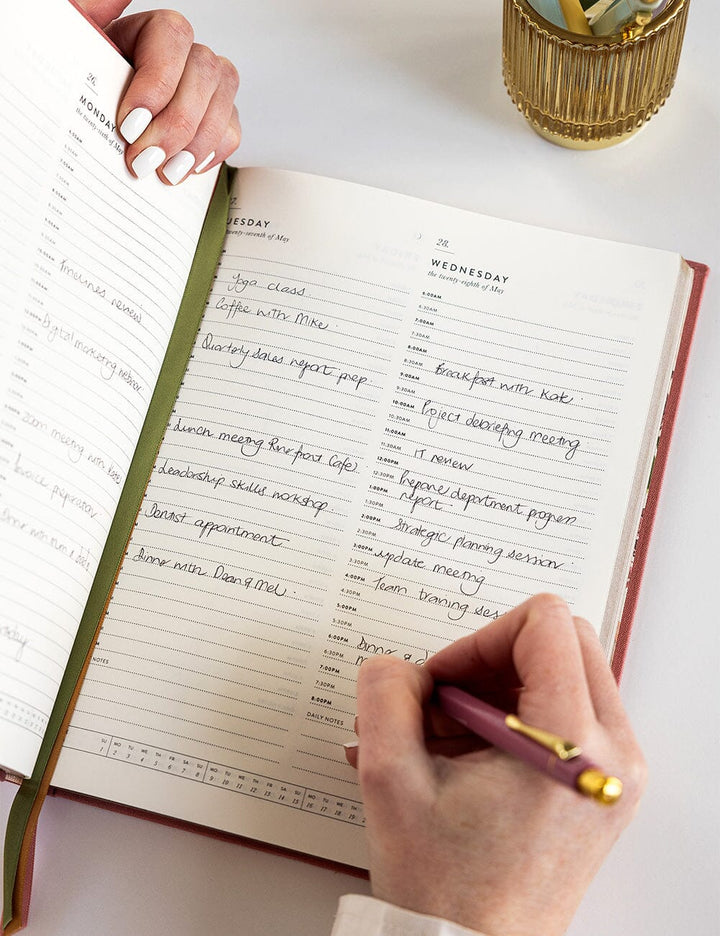 26.
MONDAY
the twenty-sixth of May
Timelines review
Digital marketing webinar
Zoom meeting with Kate
Invoice preparation
Dinner with mum &
7.
UESDAY
twenty-seventh of May
Yoga class.
Coffee with Mike.
Quarterly sales report prep.
Lunch meeting (Riverfront Cafe)
Leadership skills workshop
Dentist appointment
Dinner with Dean & Mel.
NOTES
SU MO TU WE TH FR SA SU MO TU WE TH FR SA SU MO TU WE TH
1 2 3 4 5 6 7 8 9 10 11 12 13 14 15 16 17 18 19 2
28.
WEDNESDAY
the twenty-eighth of May
6:00AM
6:30AM
7:00AM
7:30AM
8:00AM
8:30AM Breakfast with Kate.
9:00AM
9:30AM
10:00AM Project debriefing meeting
10:30AM
11:00AM
11:30AM IT review
12:00PM
12:30PM Prepare department progress
1:00PM report
1:30PM
2:00PM Strategic planning session
2:30PM
3:00PM update meeting
3:30PM
4:00PM Team training ses
4:30PM
5:00PM
5:30PM
6:00PM Dinner & d
6:30PM
7:00PM
7:30PM
8:00PM
DAILY NOTES